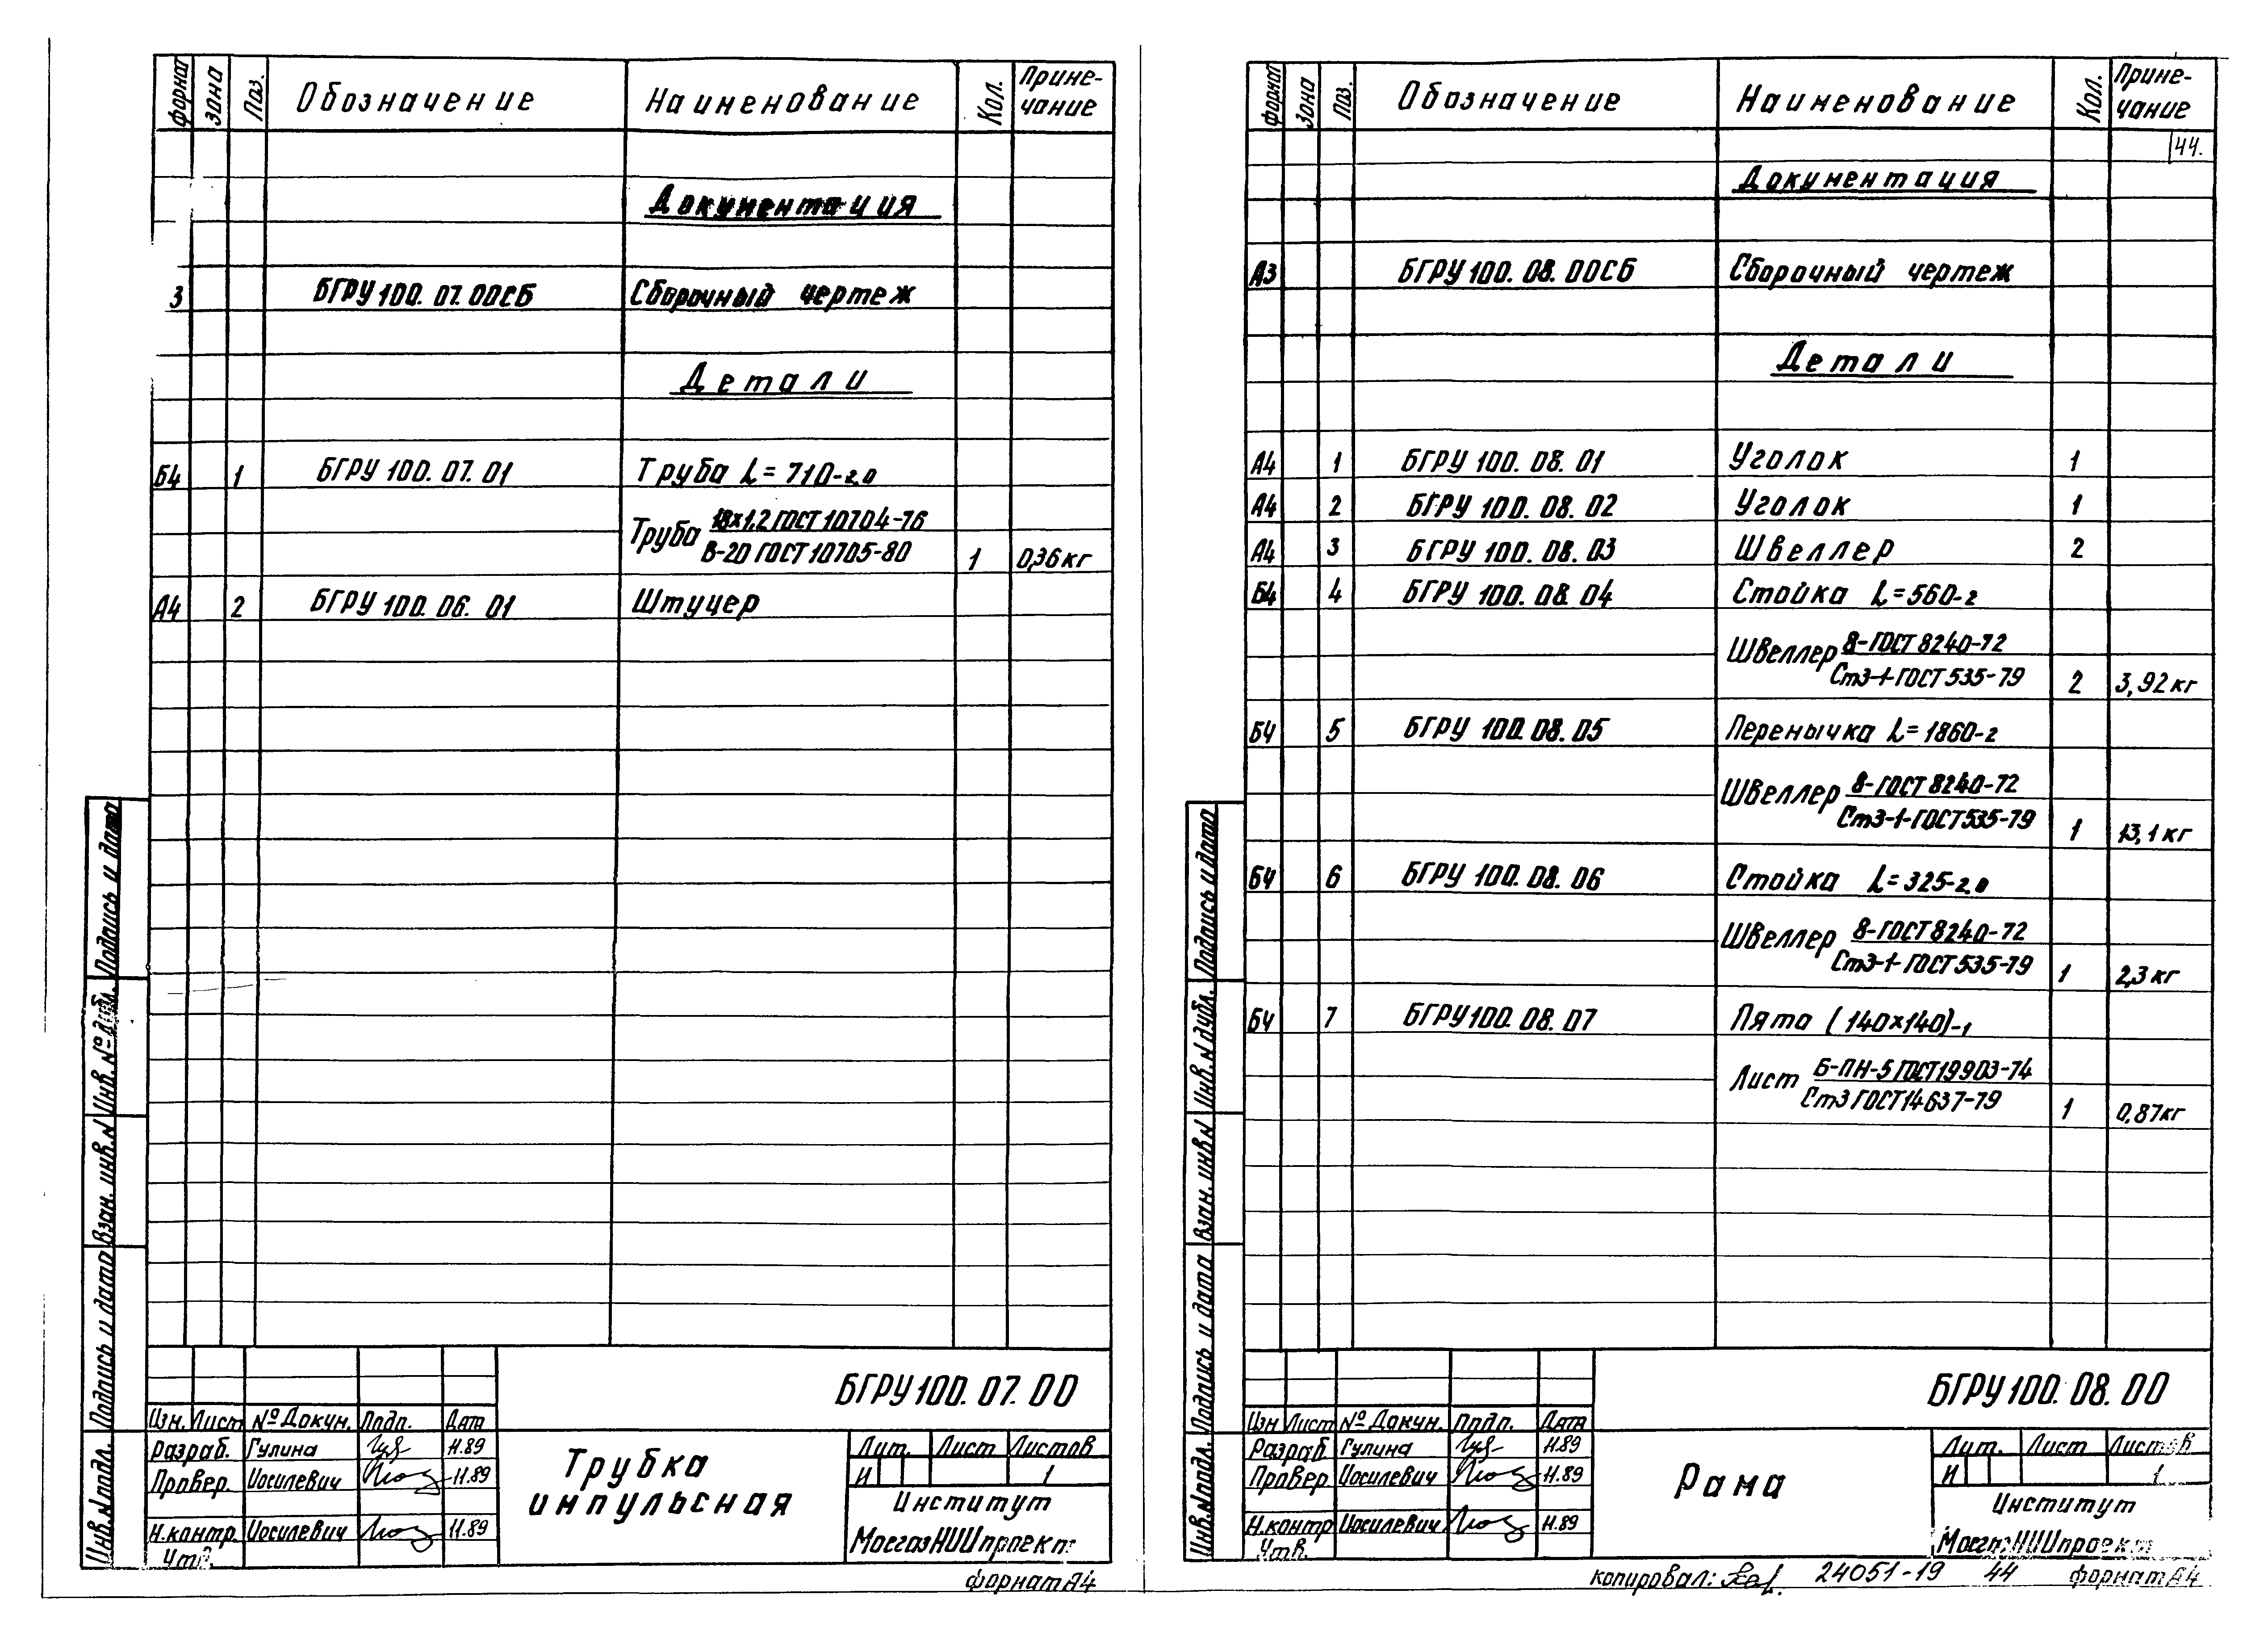 Формат Зона Поз. Обозначение Наименование Кол. Приме-
чание
Документация
3 БГРУ 100.07.00СБ Сборочный чертеж
Детали
Б4 1 БГРУ 100.07.01 Труба L=710-2,0
Труба 18×1,2 ГОСТ 10704-76
В-20 ГОСТ 10705-80 1 0,36 кг
А4 2 БГРУ 100.06.01 Штуцер
Подпись и дата
Инв. № дубл.
Взам. инв. N
Подпись и дата
Инв. N подл.
БГРУ 100.07.00
Изм. Лист № Докум. Подп. Дата
Разраб. Гулина 11.89
Провер. Иосилевич 11.89
Н.контр. Иосилевич 11.89
Утв.
Трубка
импульсная
Лит. Лист Листов
И 1
Институт
МосгазНИИпроект
формат А4
Формат Зона Поз. Обозначение Наименование Кол. Приме-
чание
44.
Документация
А3 БГРУ 100.08.00СБ Сборочный чертеж
Детали
А4 1 БГРУ 100.08.01 Уголок 1
А4 2 БГРУ 100.08.02 Уголок 1
А4 3 БГРУ 100.08.03 Швеллер 2
Б4 4 БГРУ 100.08.04 Стойка L=560-2
Швеллер 8-ГОСТ 8240-72
Ст3-1-ГОСТ 535-79 2 3,92 кг
Б4 5 БГРУ 100.08.05 Перемычка L=1860-2
Швеллер 8-ГОСТ 8240-72
Ст3-1-ГОСТ 535-79 1 13,1 кг
Б4 6 БГРУ 100.08.06 Стойка L=325-2,0
Швеллер 8-ГОСТ 8240-72
Ст3-1-ГОСТ 535-79 1 2,3 кг
Б4 7 БГРУ 100.08.07 Пята (140×140)-1
Лист Б-ПН-5 ГОСТ 19903-74
Ст3 ГОСТ 14637-79 1 0,87 кг
Подпись и дата
Инв. N дубл.
Взам. инв N
Подпись и дата
Инв. N подл.
БГРУ 100.08.00
Изм Лист № Докум. Подп. Дата
Разраб. Гулина 11.89
Провер Иосилевич 11.89
Н.контр Иосилевич 11.89
Утв.
Рама
Лит. Лист Листов
И 1
Институт
МосгазНИИпроект
копировал: 24051-19 44 формат А4